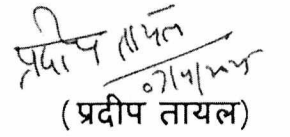 प्रदीप तायल
(प्रदीप तायल)